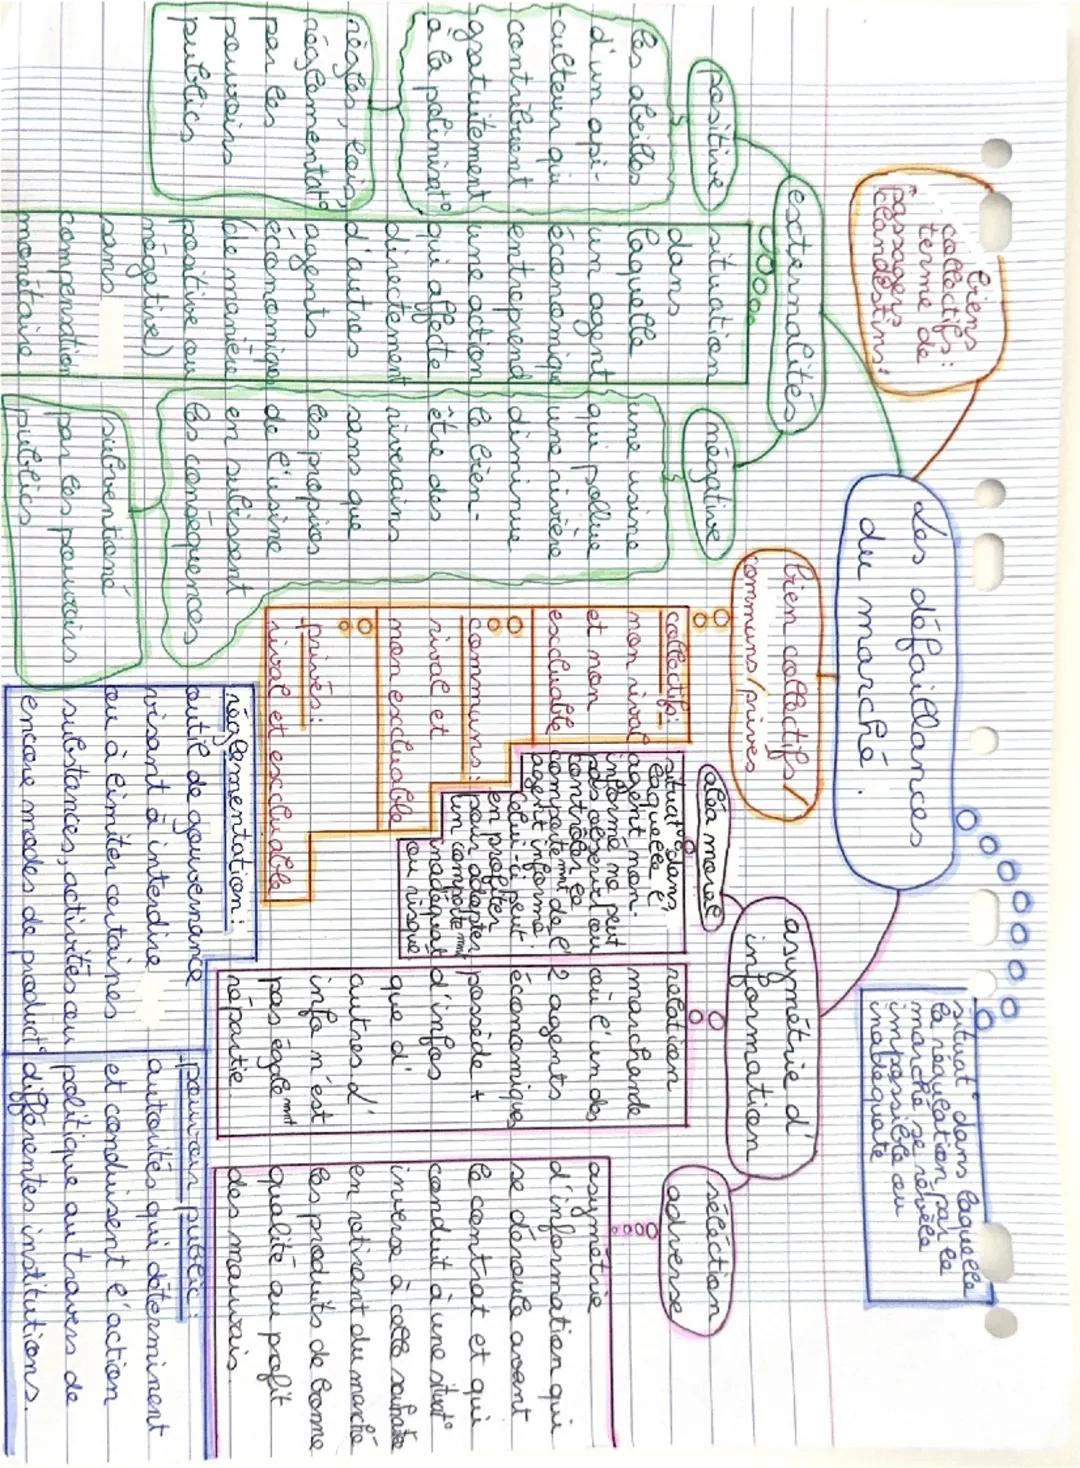 Les défaillances
du marché.
situat° dans laquelle
la régulation par le
marché se révèle
impossible ou
inadéquate
biens
collectifs :
terme de
passagers
clandestins.
externalités
situation
dans
laquelle
un agent
économique
entreprend
une action
qui affecte
directement
d'autres
agents
économiques
(de manière
positive ou
négative)
sans
compensation
monétaire
positive
les abeilles
d'un api-
culteur qui
contribuent
gratuitement
à la polinisat°
règles, lois,
réglementat°
par les
pouvoirs
publics
négative
une usine
qui pollue
une rivière
diminue
le bien-
être des
riverains
sans que
les propios
de l'usine
en subissent
les conséquences
subventioné
par les pouvoirs
publics
bien collectifs/
communs/privés
collectif:
non rival
et non
excluable
communs:
rival et
non excluable
privés:
rival et excluable
asymétrie d'
information
relation
marchande
où l'un des
2 agents
économiques
possède +
d'infos
que d'
autres d'
info n'est
pas égalemnt
répartie
aléa moral
situat° dans
laquelle l'
agent non-
informé ne peut
pas observer ou
contrôler le
comportemnt de l'
agent informé.
Celui-ci peut
en profiter
pour adopter
un comportemnt
inadéquat
ou risqué
séléction
adverse
asymétrie
d'information qui
se déroule avant
le contrat et qui
conduit à une situat°
inverse à celle souhaitée
en retirant du marché
les produits de bonne
qualité au profit
des mauvais.
réglementation:
outil de gouvernance
visant à interdire
ou à limiter certaines
substances, activités ou
encore modes de product°
pouvoir public:
autorités qui déterminent
et conduisent l'action
politique au travers de
différentes institutions.